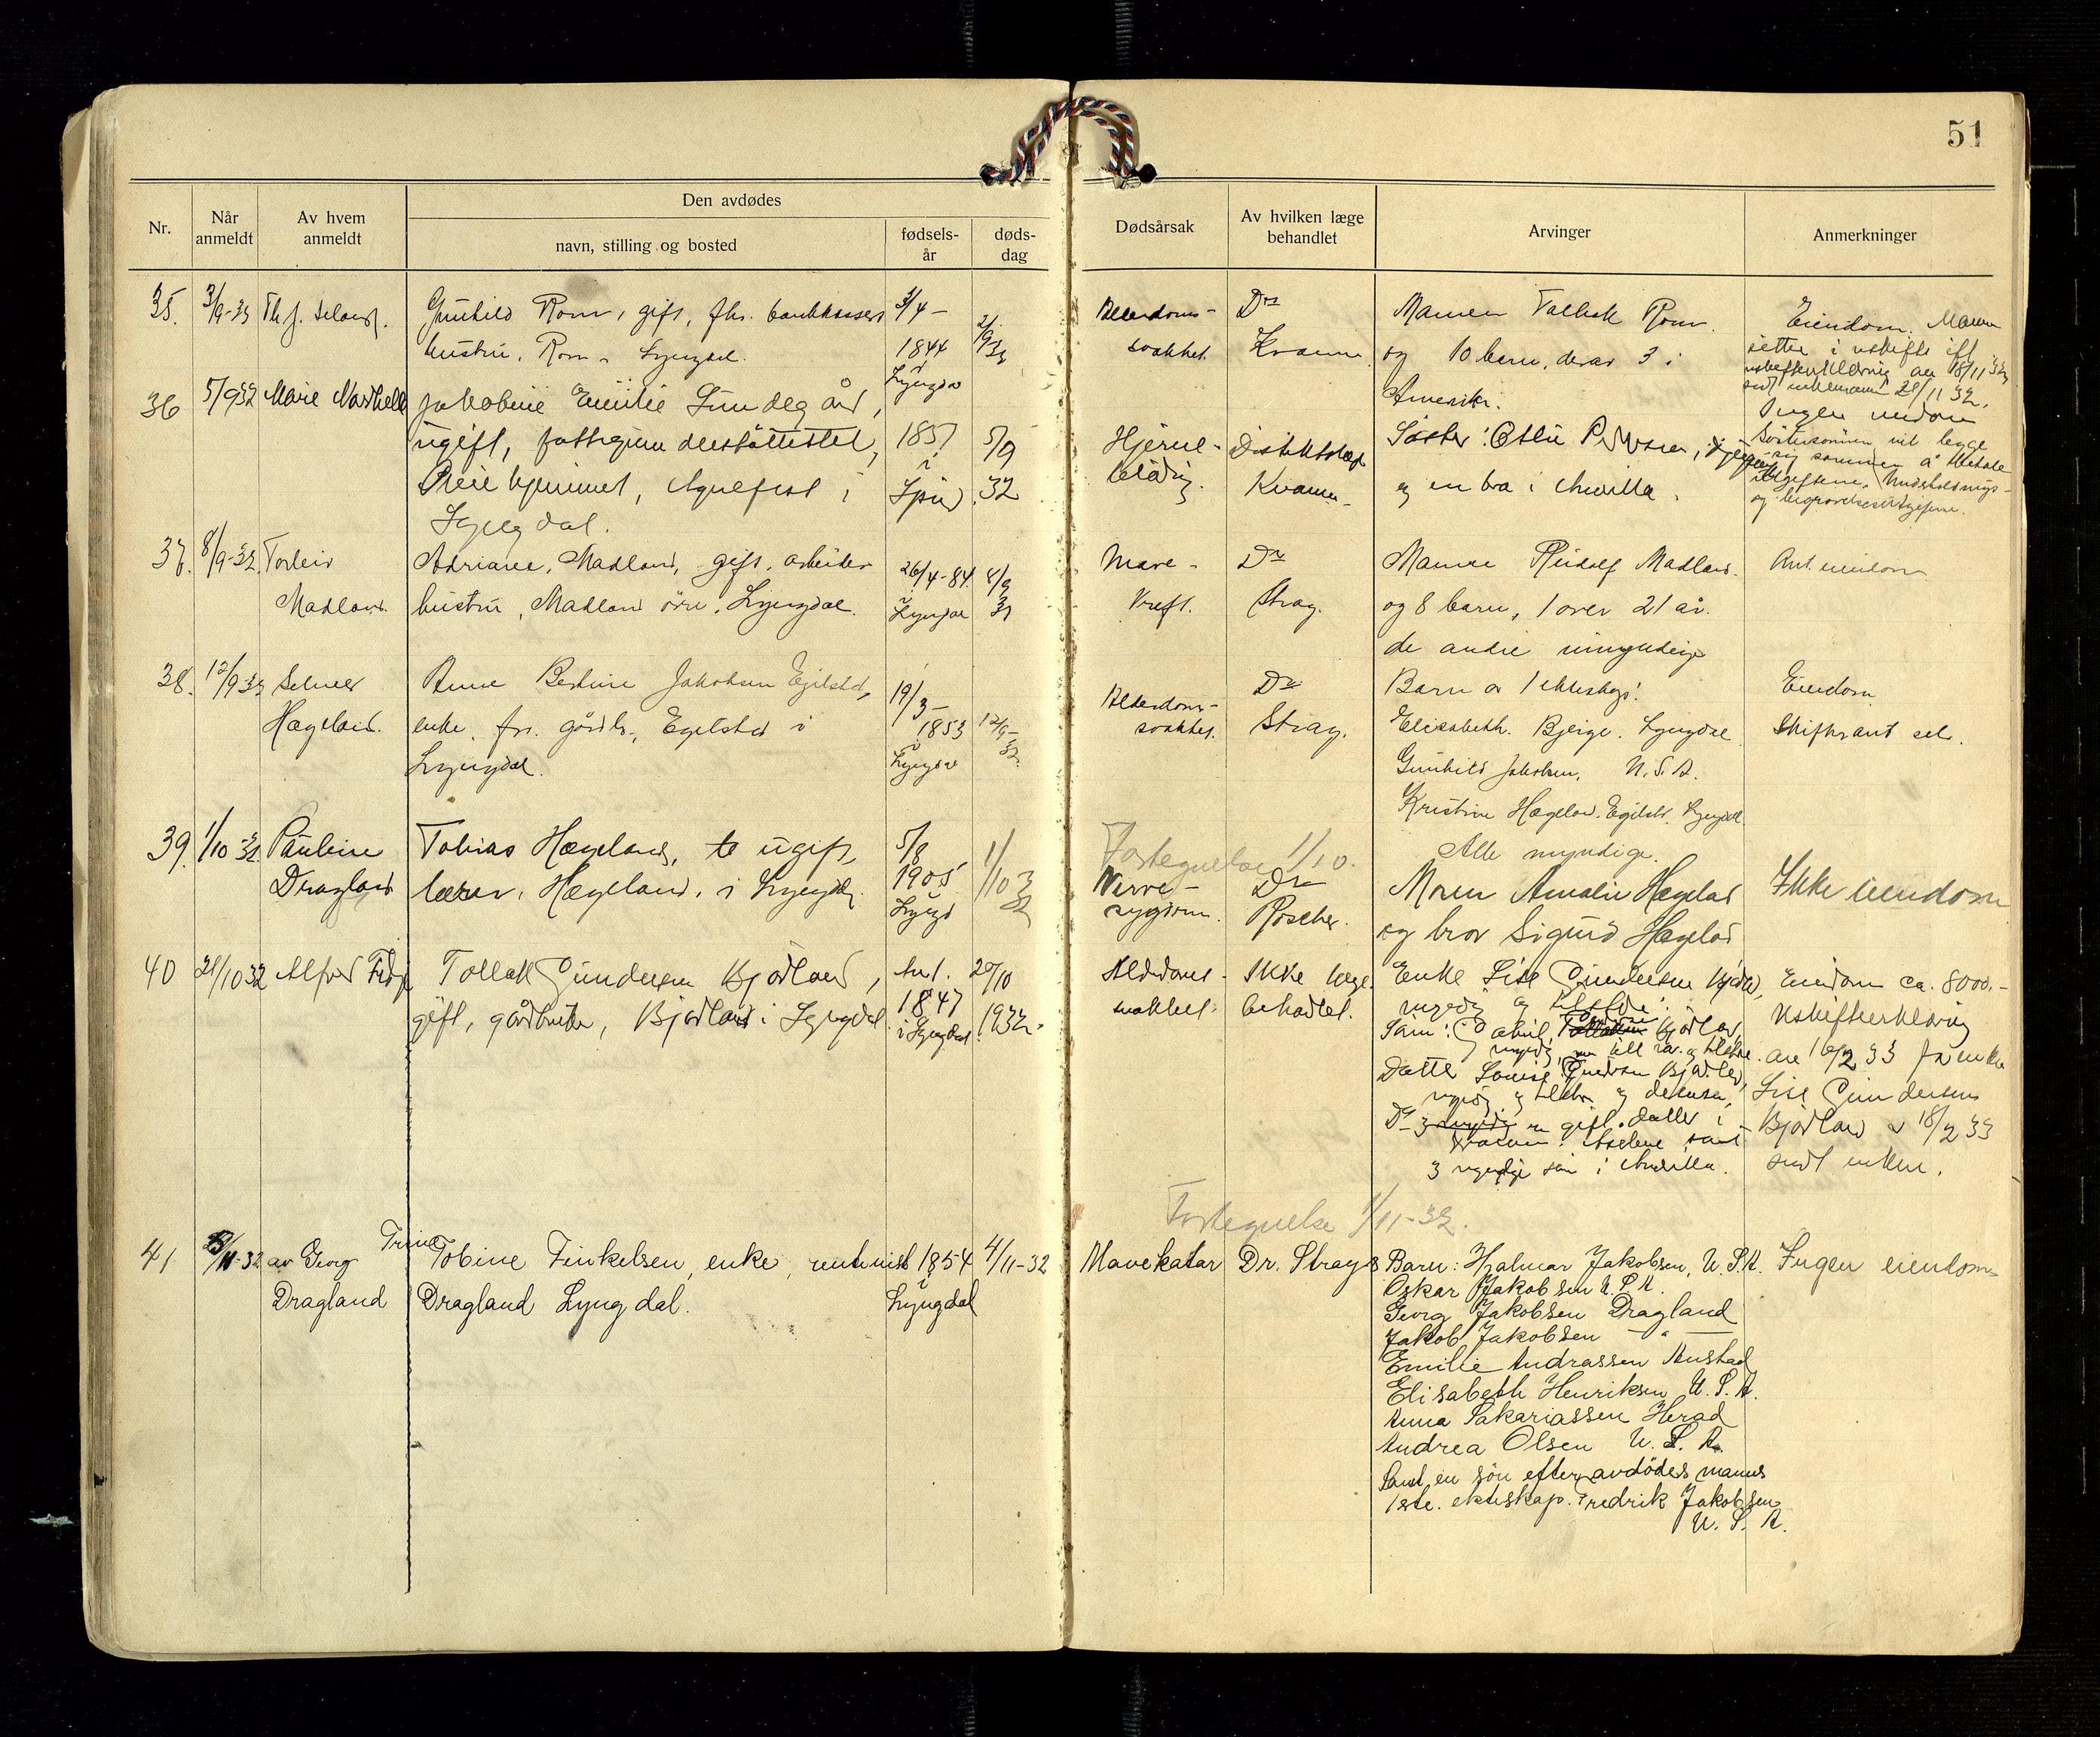 51
Nr.
Når anmeldt
Av hvem anmeldt
Den avdødes
navn, stilling og bosted
fødsels-år
døds-dag
Dødsårsak
Av hvilken læge behandlet
Arvinger
Anmerkninger
35.
Gunhild Rom, gift, fhv.
hustru, Rom, Lyngdal.
3/4 -
1844
Lyngdal
Alderdoms-
svakhet
Dr
Kvamme
Mannen Tallak Rom
og 10 barn, derav 3 i
Amerika.
Eiendom. Mannen
sitter i uskifte ift.
uskifteerklæring av 18/11 32
36
5/9 32
Marie
Jakobine Emilie
ugift, fattigunderstøttettet,
Pleiehjemmet, Agnefest i
Lyngdal.
1857
i
5/9
32
Hjerne-
blødning.
Distriktslæge
Kvamme
Søster: Otilie
og en bror i Amerika.
Ingen eiendom
37.
8/9-32.
Torleiv
Madland.
Adriane Madland, gift, arbeider
hustru, Madland øvre, Lyngdal.
26/4-84.
i
Lyngdal
8/9
32
Mave-
kreft.
Dr
Stray.
Mannen Rudolf Madland.
og 8 barn, 1 over 21 år.
de andre umyndige
Ant. eiendom
38.
12/9 32
Selmer
Hægeland.
Anne Bertine Jakobsen Egilstad,
enke, fhv. gårdbr., Egelstad i
Lyngdal.
19/3 -
1853
i
Lyngdal
12/9-
32.
Alderdoms-
svakhet.
Dr
Stray.
Barn av 1 ekteskap:
Elisabeth Bjerge, Lyngdal
Gunhild Jakobsen, U.S.A.
Kristine Hægeland, Egilstd. Lyngdal.
Alle myndige.
Eiendom
Skifter ant selv.
39.
1/10 32
Pauline
Dragland
Tobias Hægeland, ugift,
lærer, Hægeland, i Lyngdal.
5/8
1905
Lyngd
1/10
32
Fortegnelse 1/10.
Nerve-
sygdom.
Dr
Roscher.
Moren Amalie Hægeland
og bror Sigurd Hægeland
Ikke eiendom
40
21/10 32
Alfred
Tollak Gundersen Bjødland,
gift, gårdbruker, Bjødland i Lyngdal
Ant.
1847
i Lyngdal.
20/10
1932.
Alderdoms-
svakhet.
Ikke læge
behandlet.
Enke Lise Gundersen Bjødland,
myndig og tilstede.
Datter Louise Gundersen Bjødland,
3 myndige søn i Amerika.
Eiendom ca. 8000.-
Uskifteerklæring
av 16/2 33 fra enken
Lise Gundersen
Bjødland 18/2 33
sendt enken.
Fortegnelse 1/11-32.
41
/11-32
av Georg
Dragland
Trine
Tobine Finkelsen, enke, rentenist
Dragland Lyngdal.
1854
i
Lyngdal
4/11-32
Mavekatar
Dr. Strays
Barn: Hjalmar Jakobsen, U.S.A.
Oskar Jakobsen U.S.A.
Georg Jakobsen Dragland
Jakob Jakobsen — " —
Emilie Andrassen Austad
Elisabeth Henriksen U.S.A.
Anna Sakariassen Herad
Andrea Olsen U.S.A.
Samt en søn efter avdødes manns
1ste. ekteskap. Fredrik Jakobsen
U.S.A.
Ingen eiendom